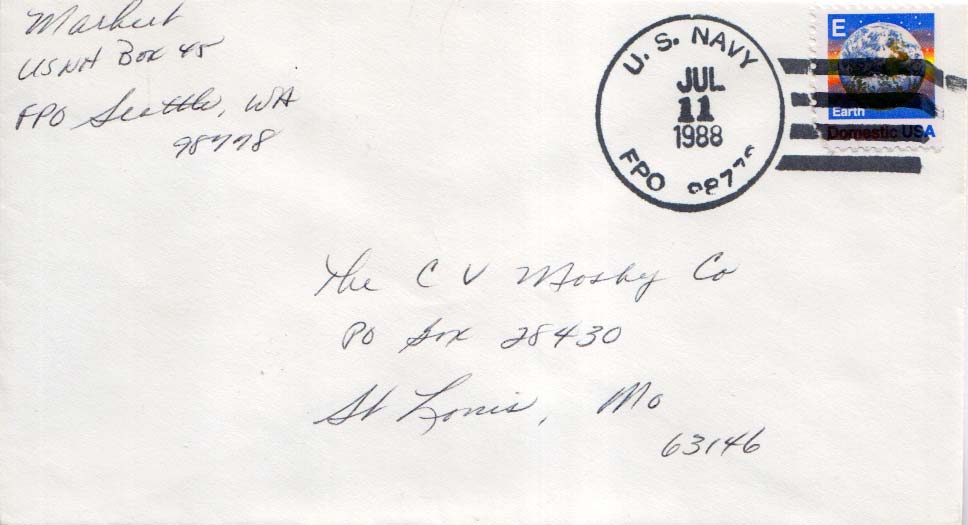 Markut
USNH Box 45
FPO Seattle, WA
98778
U. S. NAVY
JUL
11
1988
FPO 98778
E
Earth
Domestic USA
The C V Mosby Co
PO Box 28430
St Louis, Mo
63146